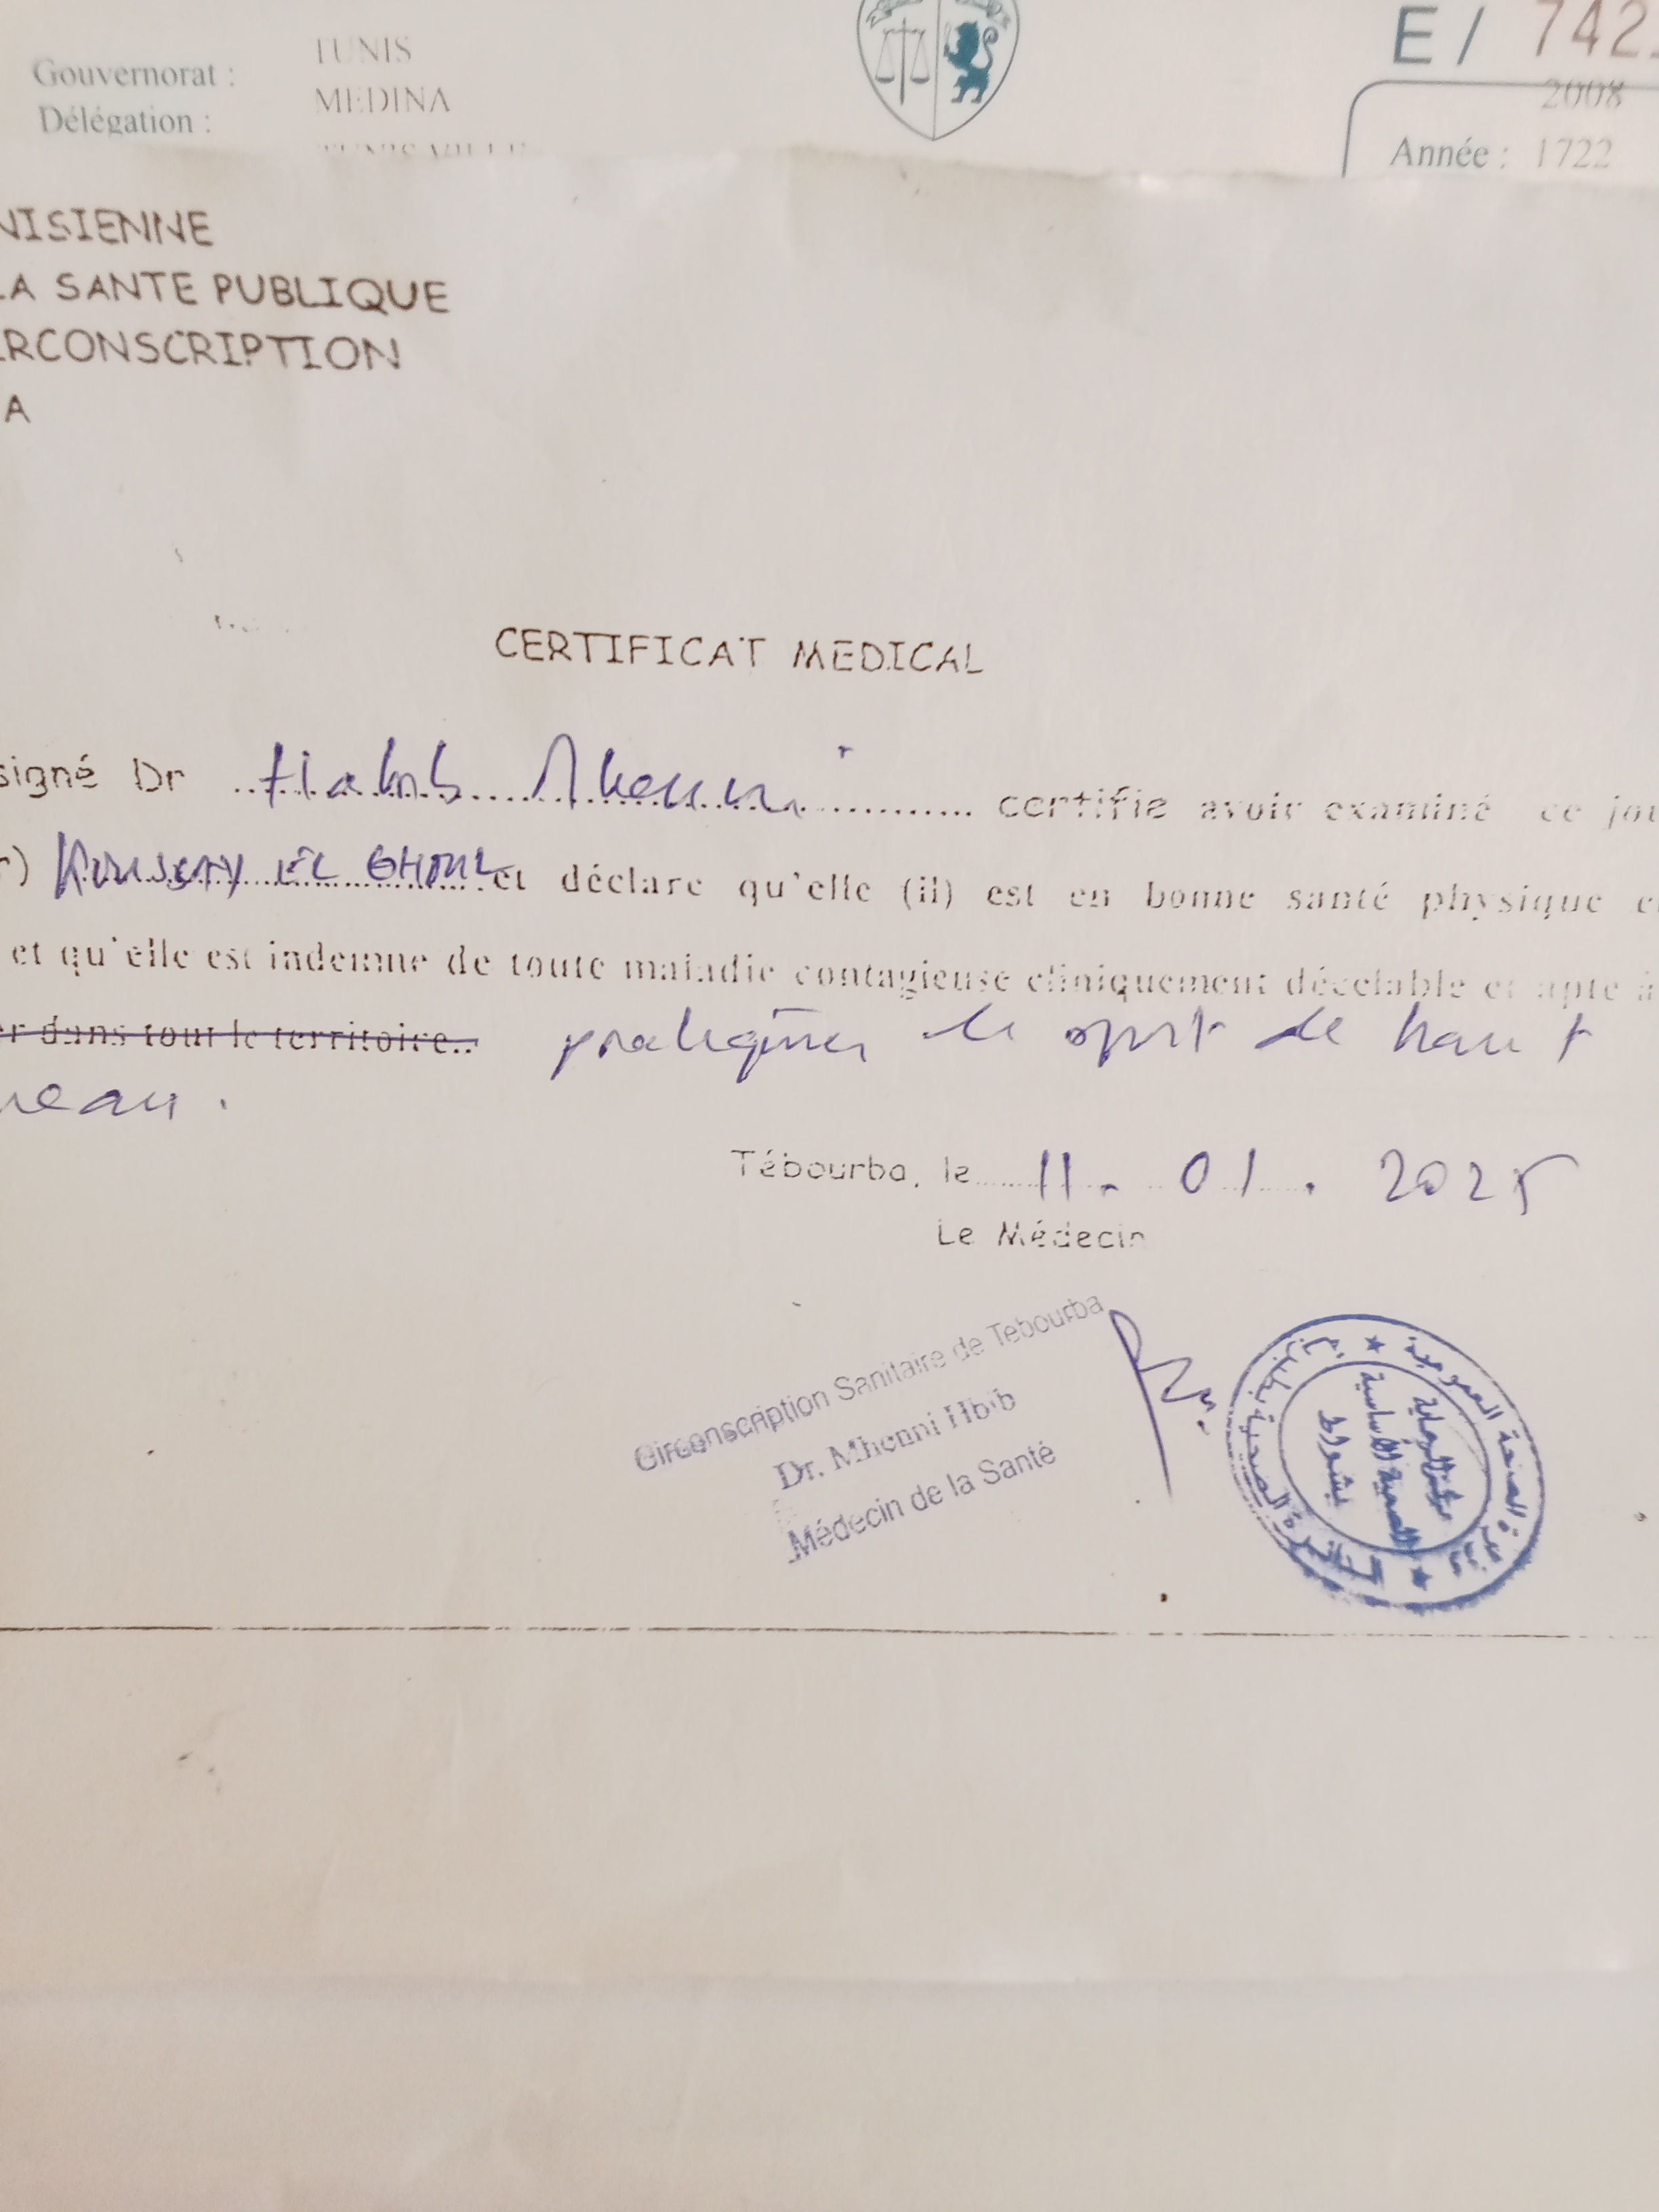 Gouvernorat : TUNIS
Délégation : MEDINA
E / 742
2008
Année : 1722
NISIENNE
LA SANTE PUBLIQUE
RCONSCRIPTION
A
CERTIFICAT MEDICAL
signé Dr Habib Mhenni certifie avoir examiné ce jou
r) EL GHOUL et déclare qu'elle (il) est en bonne santé physique e
et qu'elle est indemne de toute maladie contagieuse cliniquement décelable et apte à
er dans tout le territoire.. pratiquer le sport de haut
neau.
Tébourba, le 11. 01. 2025
Le Médecin
Circonscription Sanitaire de Tebourba
Dr. Mhenni Hbib
Médecin de la Santé
الصحة العمومية
مركز الرعاية
الصحية الأساسية
بشواط
الدائرة الصحية بطبربة